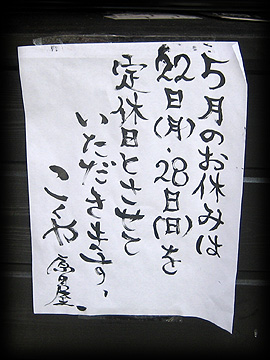 5月のお休みは
22日(月)・28日(日)を
定休日とさせて
いただきます。
こくや